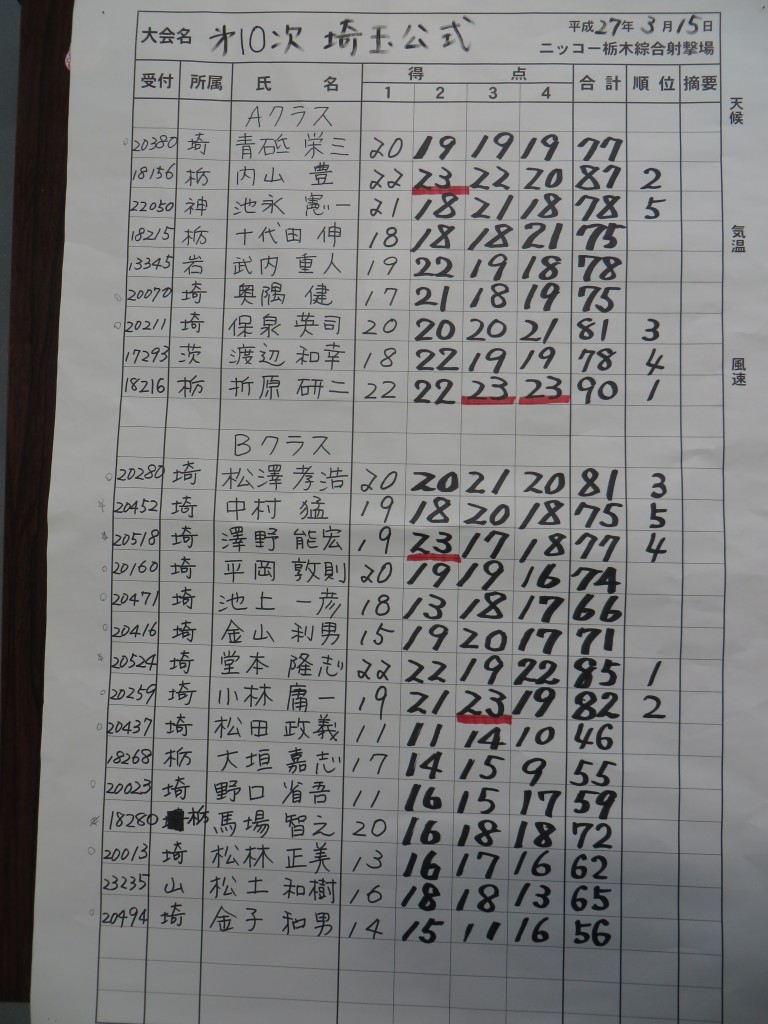 平成27年3月15日
大会名 オ10次 埼玉公式 ニッコー栃木綜合射撃場
受付 所属 氏名 得点 合計 順位 摘要
1 2 3 4
天候
気温
風速
Aクラス
20380 埼 青砥 栄三 20 19 19 19 77
18156 栃 内山 豊 22 23 22 20 87 2
22050 神 池永 憲一 21 18 21 18 78 5
18215 栃 十代田 伸 18 18 18 21 75
13345 岩 武内 重人 19 22 19 18 78
20070 埼 奥隅 健 17 21 18 19 75
20211 埼 保泉 英司 20 20 20 21 81 3
17293 茨 渡辺 和幸 18 22 19 19 78 4
18216 栃 折原 研二 22 22 23 23 90 1
Bクラス
20280 埼 松澤 孝浩 20 20 21 20 81 3
20452 埼 中村 猛 19 18 20 18 75 5
20518 埼 澤野 能宏 19 23 17 18 77 4
20160 埼 平岡 敦則 20 19 19 16 74
20471 埼 池上 一彦 18 13 18 17 66
20416 埼 金山 利男 15 19 20 17 71
20524 埼 堂本 隆志 22 22 19 22 85 1
20259 埼 小林 庸一 19 21 23 19 82 2
20437 埼 松田 政義 11 11 14 10 46
18268 栃 大垣 嘉志 17 14 15 9 55
20023 埼 野口 省吾 11 16 15 17 59
18280 栃 馬場 智之 20 16 18 18 72
20013 埼 松林 正美 13 16 17 16 62
23235 山 松土 和樹 16 18 18 13 65
20494 埼 金子 和男 14 15 11 16 56